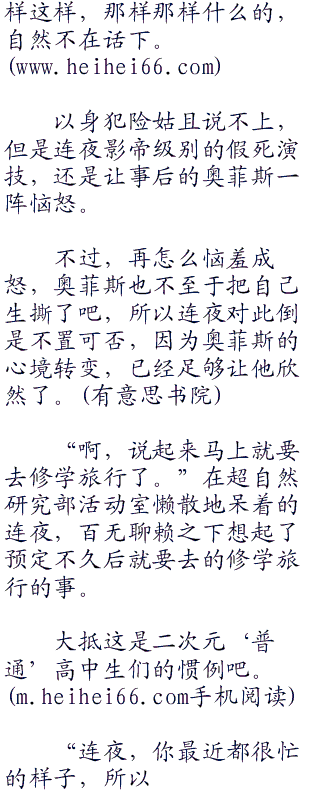 样这样，那样那样什么的，
自然不在话下。
(www.heihei66.com)
以身犯险姑且说不上，
但是连夜影帝级别的假死演
技，还是让事后的奥菲斯一
阵恼怒。
不过，再怎么恼羞成
怒，奥菲斯也不至于把自己
生撕了吧，所以连夜对此倒
是不置可否，因为奥菲斯的
心境转变，已经足够让他欣
然了。(有意思书院)
“啊，说起来马上就要
去修学旅行了。”在超自然
研究部活动室懒散地呆着的
连夜，百无聊赖之下想起了
预定不久后就要去的修学旅
行的事。
大抵这是二次元‘普
通’高中生们的惯例吧。
(m.heihei66.com手机阅读)
“连夜，你最近都很忙
的样子，所以